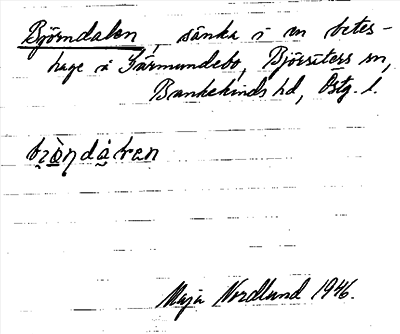 Björndalen, sänka i en betes-
hage i Särmundebo, Björsäters sn,
Bankekinds hd, Östg. l.
Maja Nordlund 1946.